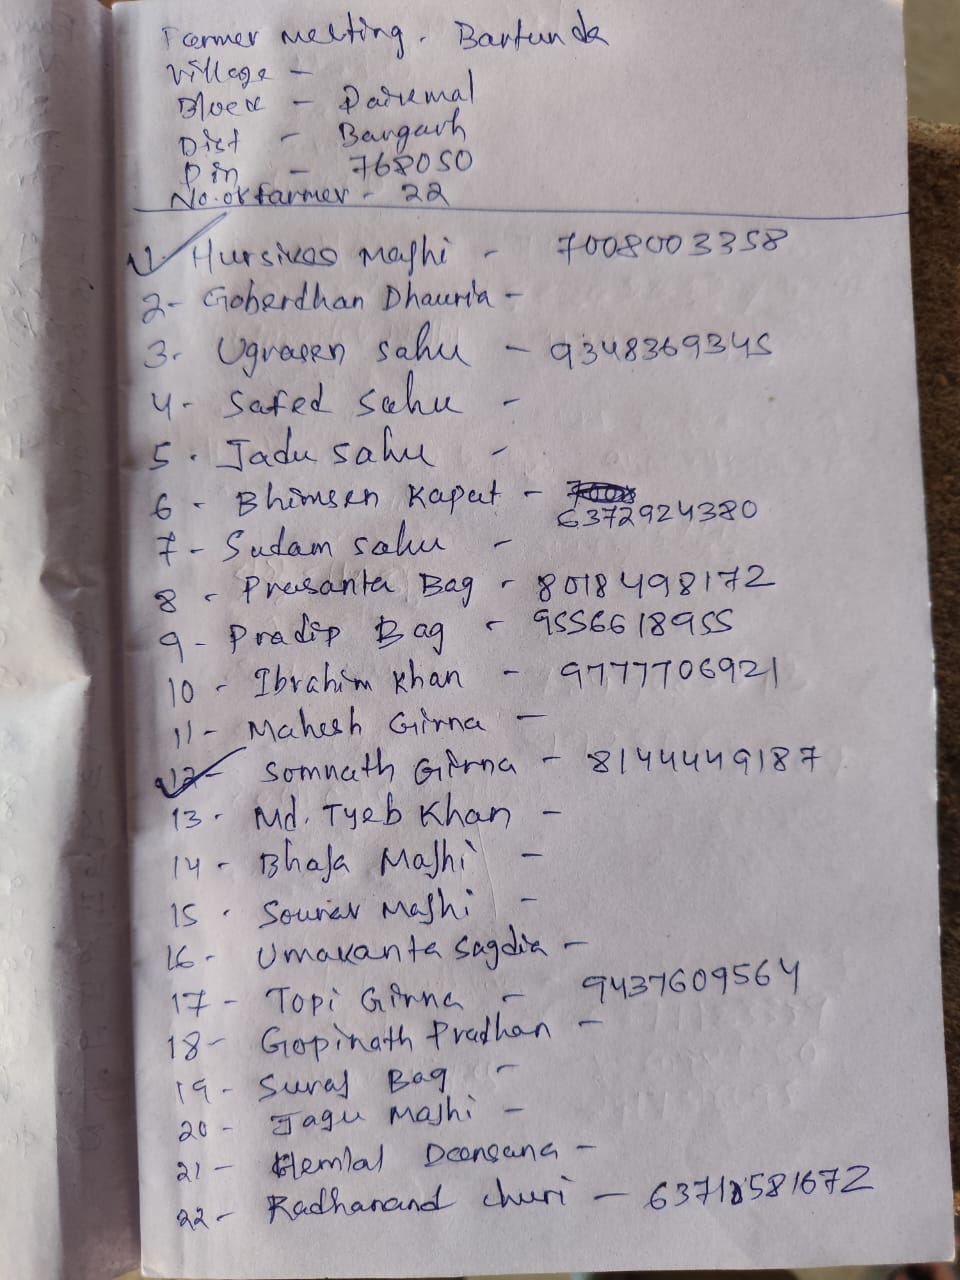 Farmer meeting. Bartunda
Village -
Block - Paikmal
Dist - Bargarh
Pin - 768050
No. of farmer - 22
1. Hursikes Majhi - 7008003358
2- Goberdhan Dhauria -
3. Ugrasen sahu - 9348369345
4- Safed Sahu -
5. Jadu sahu -
6 - Bhimsen Kapat -
6372924380
7- Sudam sahu -
8 - Prasanta Bag - 8018498172
9- Pradip Bag - 9556618955
10 - Ibrahim Khan - 9777706921
11- Mahesh Girna -
12- Somnath Girna - 8144449187
13. Md. Tyeb Khan -
14 - Bhaja Majhi -
15 . Sourav Majhi -
16 - Umakanta Sagdia -
17 - Topi Girna - 9437609564
18- Gopinath Pradhan -
19 - Suraj Bag -
20 - Jagu Majhi -
21 - Hemlal Deansana -
22 - Radhanand churi -